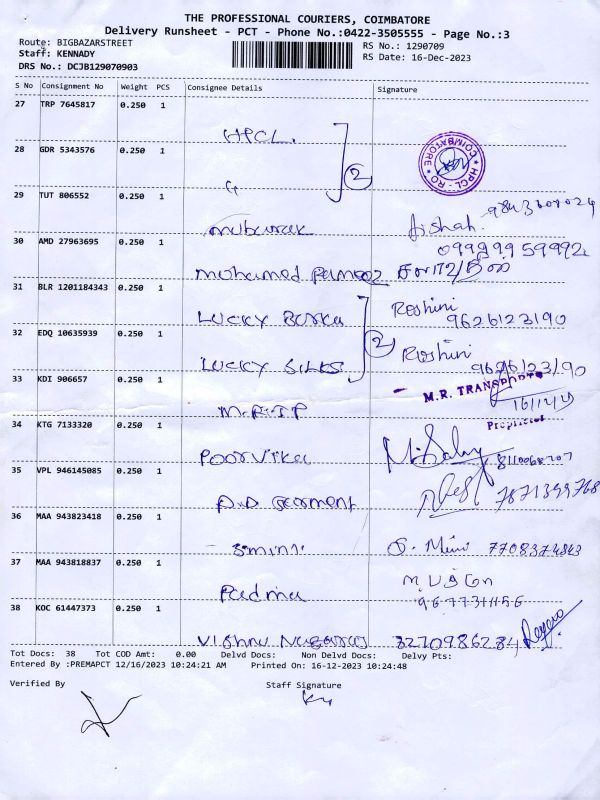 THE PROFESSIONAL COURIERS, COIMBATORE
Delivery Runsheet - PCT - Phone No.:0422-3505555 - Page No.:3
Route: BIGBAZARSTREET
Staff: KENNADY
DRS No.: DCJB129070903
RS No.: 1290709
RS Date: 16-Dec-2023
S No Consignment No Weight PCS Consignee Details Signature
27 TRP 7645817 0.250 1
HPCL.
28 GDR 5343576 0.250 1
2
COIMBATORE ★ HPCL - RO ★
29 TUT 806552 0.250 1
mubarak Aishah.
30 AMD 27963695 0.250 1
09999959992
mohamed
31 BLR 1201184343 0.250 1
LUCKY Burka Roshini
9626123190
32 EDQ 10635939 0.250 1
2
LUCKY SILKS Roshini
9626123190
33 KDI 906657 0.250 1
M.R. TRANSPORTS
Proprietor
34 KTG 7133320 0.250 1
POORVIKA
35 VPL 946145085 0.250 1
D.D Garment 7871399768
36 MAA 943823418 0.250 1
7708374843
37 MAA 943818837 0.250 1
Padma
38 KOC 61447373 0.250 1
Vishnu
Tot Docs: 38 Tot COD Amt: 0.00 Delvd Docs: Non Delvd Docs: Delvy Pts:
Entered By :PREMAPCT 12/16/2023 10:24:21 AM Printed On: 16-12-2023 10:24:48
Verified By Staff Signature